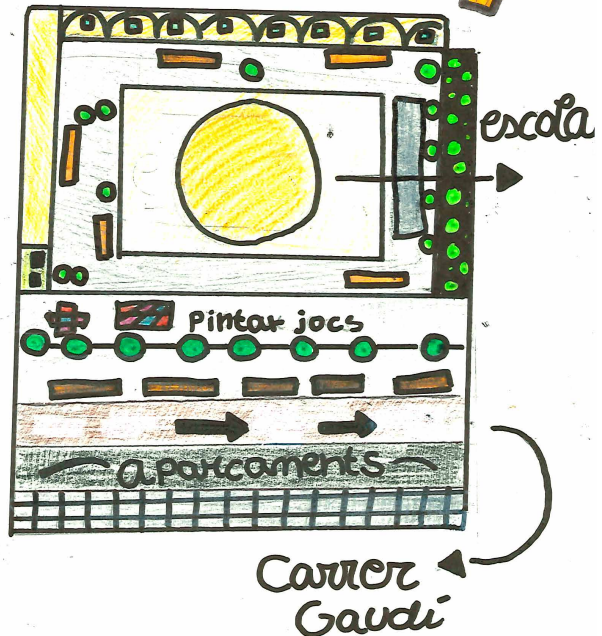 escola
Pintar jocs
aparcaments
Carrer
Gaudí